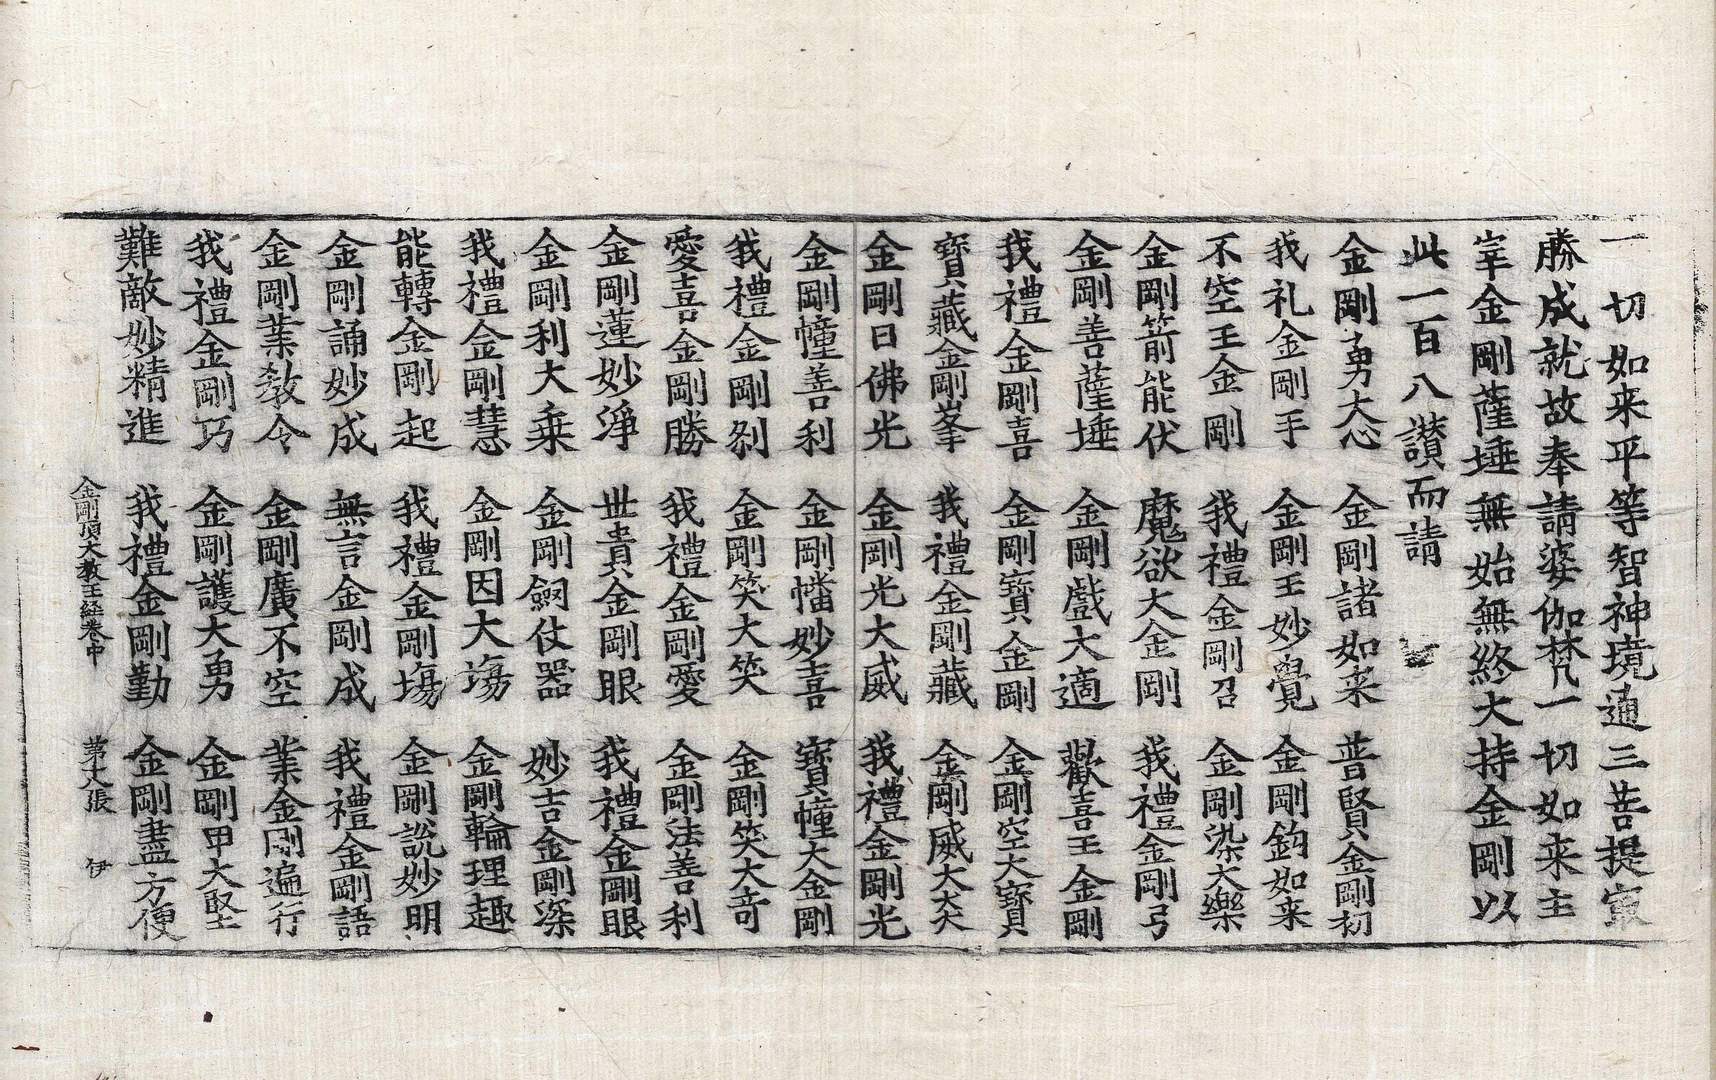 一切如来平等智神境通三菩提寂
勝成就故奉請婆伽梵一切如来主
宰金剛薩埵無始無終大持金剛以
此一百八讃而請
金剛勇大心　金剛諸如来　普賢金剛初
我礼金剛手　金剛王妙覺　金剛鈎如来
不空王金剛　我禮金剛召　金剛染大樂
金剛箭能伏　魔欲大金剛　我禮金剛弓
金剛善薩埵　金剛戲大適　歡喜王金剛
我禮金剛喜　金剛寶金剛　金剛空大寶
寶藏金剛峯　我禮金剛藏　金剛威大炎
金剛日佛光　金剛光大威　我禮金剛光
金剛幢善利　金剛幡妙喜　寶幢大金剛
我禮金剛刹　金剛笑大笑　金剛笑大奇
愛喜金剛勝　我禮金剛愛　金剛法善利
金剛蓮妙淨　世貴金剛眼　我禮金剛眼
金剛利大乗　金剛劒仗器　妙吉金剛深
我禮金剛慧　金剛因大場　金剛輪理趣
能轉金剛起　我禮金剛場　金剛說妙明
金剛誦妙成　無言金剛成　我禮金剛語
金剛業教令　金剛廣不空　業金剛遍行
我禮金剛巧　金剛護大勇　金剛甲大堅
難敵妙精進　我禮金剛勤　金剛盡方便
金剛頂大教王経卷中　第　張　伊